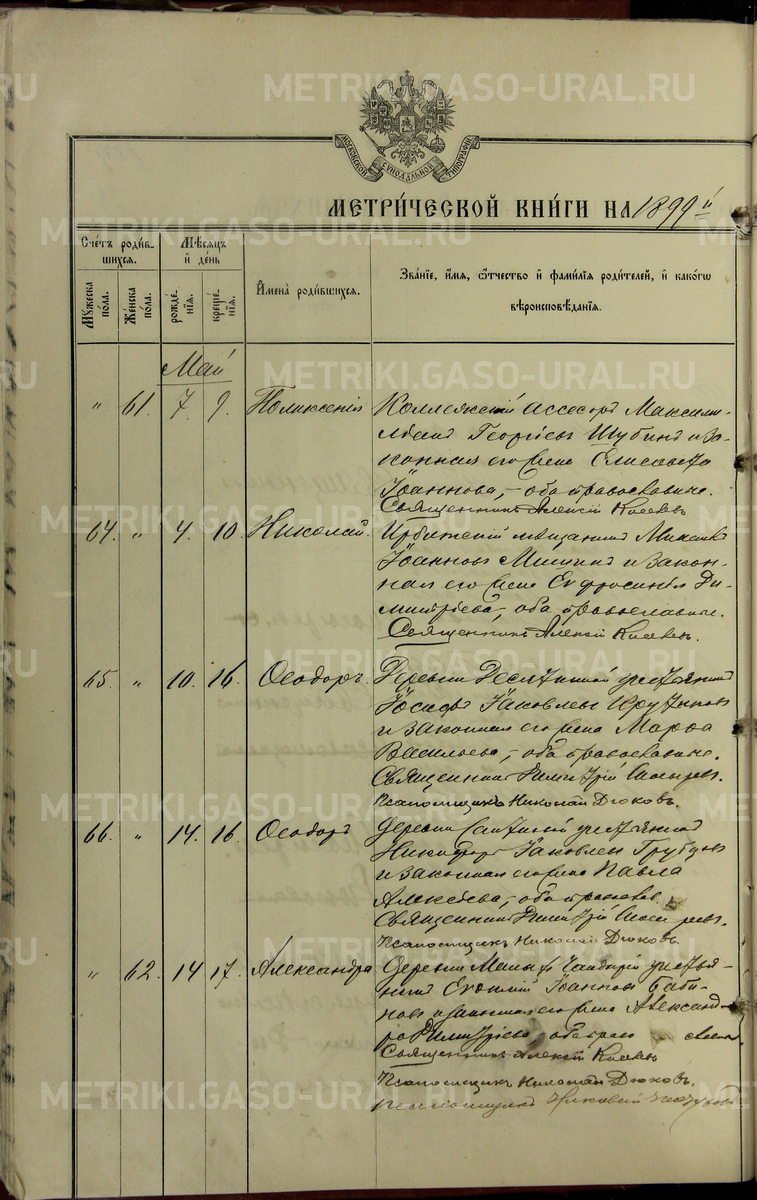 METRIKI.GASO-URAL.RU
МОСКОВСКОЙ СУНОДАЛЬНОЙ ТИПОГРАФІИ
МЕТРИ́ЧЕСКОЙ КНИ́ГИ НА 1899 й
Сче́тъ роди́в-
шихся.
Мѣсяцъ
и день
Му́жеска
по́ла.
Же́нска
по́ла.
рожде́-
нія.
креще́-
нія.
Имена̀ роди́вшихся.
Зва́ніе, и́мя, ѻ́тчество и фами́лія роди́телей, и како́гѡ
вѣроисповѣ́данія.
Май
" 61. 7. 9. Поликсенія Коллежскій Ассесоръ Максими-
ліанъ Георгіевъ Шубинъ и за-
конная его жена Елисавета
Іоаннова,- оба православные.
Священникъ Алексій
64. " 4. 10. Николай. Ирбитскій мѣщанинъ Михаилъ
Іоанновъ и закон-
ная его жена Евфросинія Ди-
митріева,- оба православные.
Священникъ Алексій
65. " 10. 16. Ѳеодоръ. Деревни крестьянинъ
Іосифъ Іаковлевъ
и законная его жена Марѳа
Васильева,- оба православные.
Священникъ Димитрій
Псаломщикъ Николай Дюковъ.
66. " 14. 16. Ѳеодоръ Деревни крестьянинъ
Никифоръ Іаковлевъ
и законная его жена Павла
Алексѣева,- оба православ.
Священникъ Димитрій
Псаломщикъ Николай Дюковъ.
" 62. 14 17. Александра Деревни крестья-
нинъ Евѳимій Іоанновъ Баби-
новъ и законная его жена Александ-
ра Димитріева, оба
Священникъ Алексій
Псаломщикъ Николай Дюковъ.
Псаломщикъ